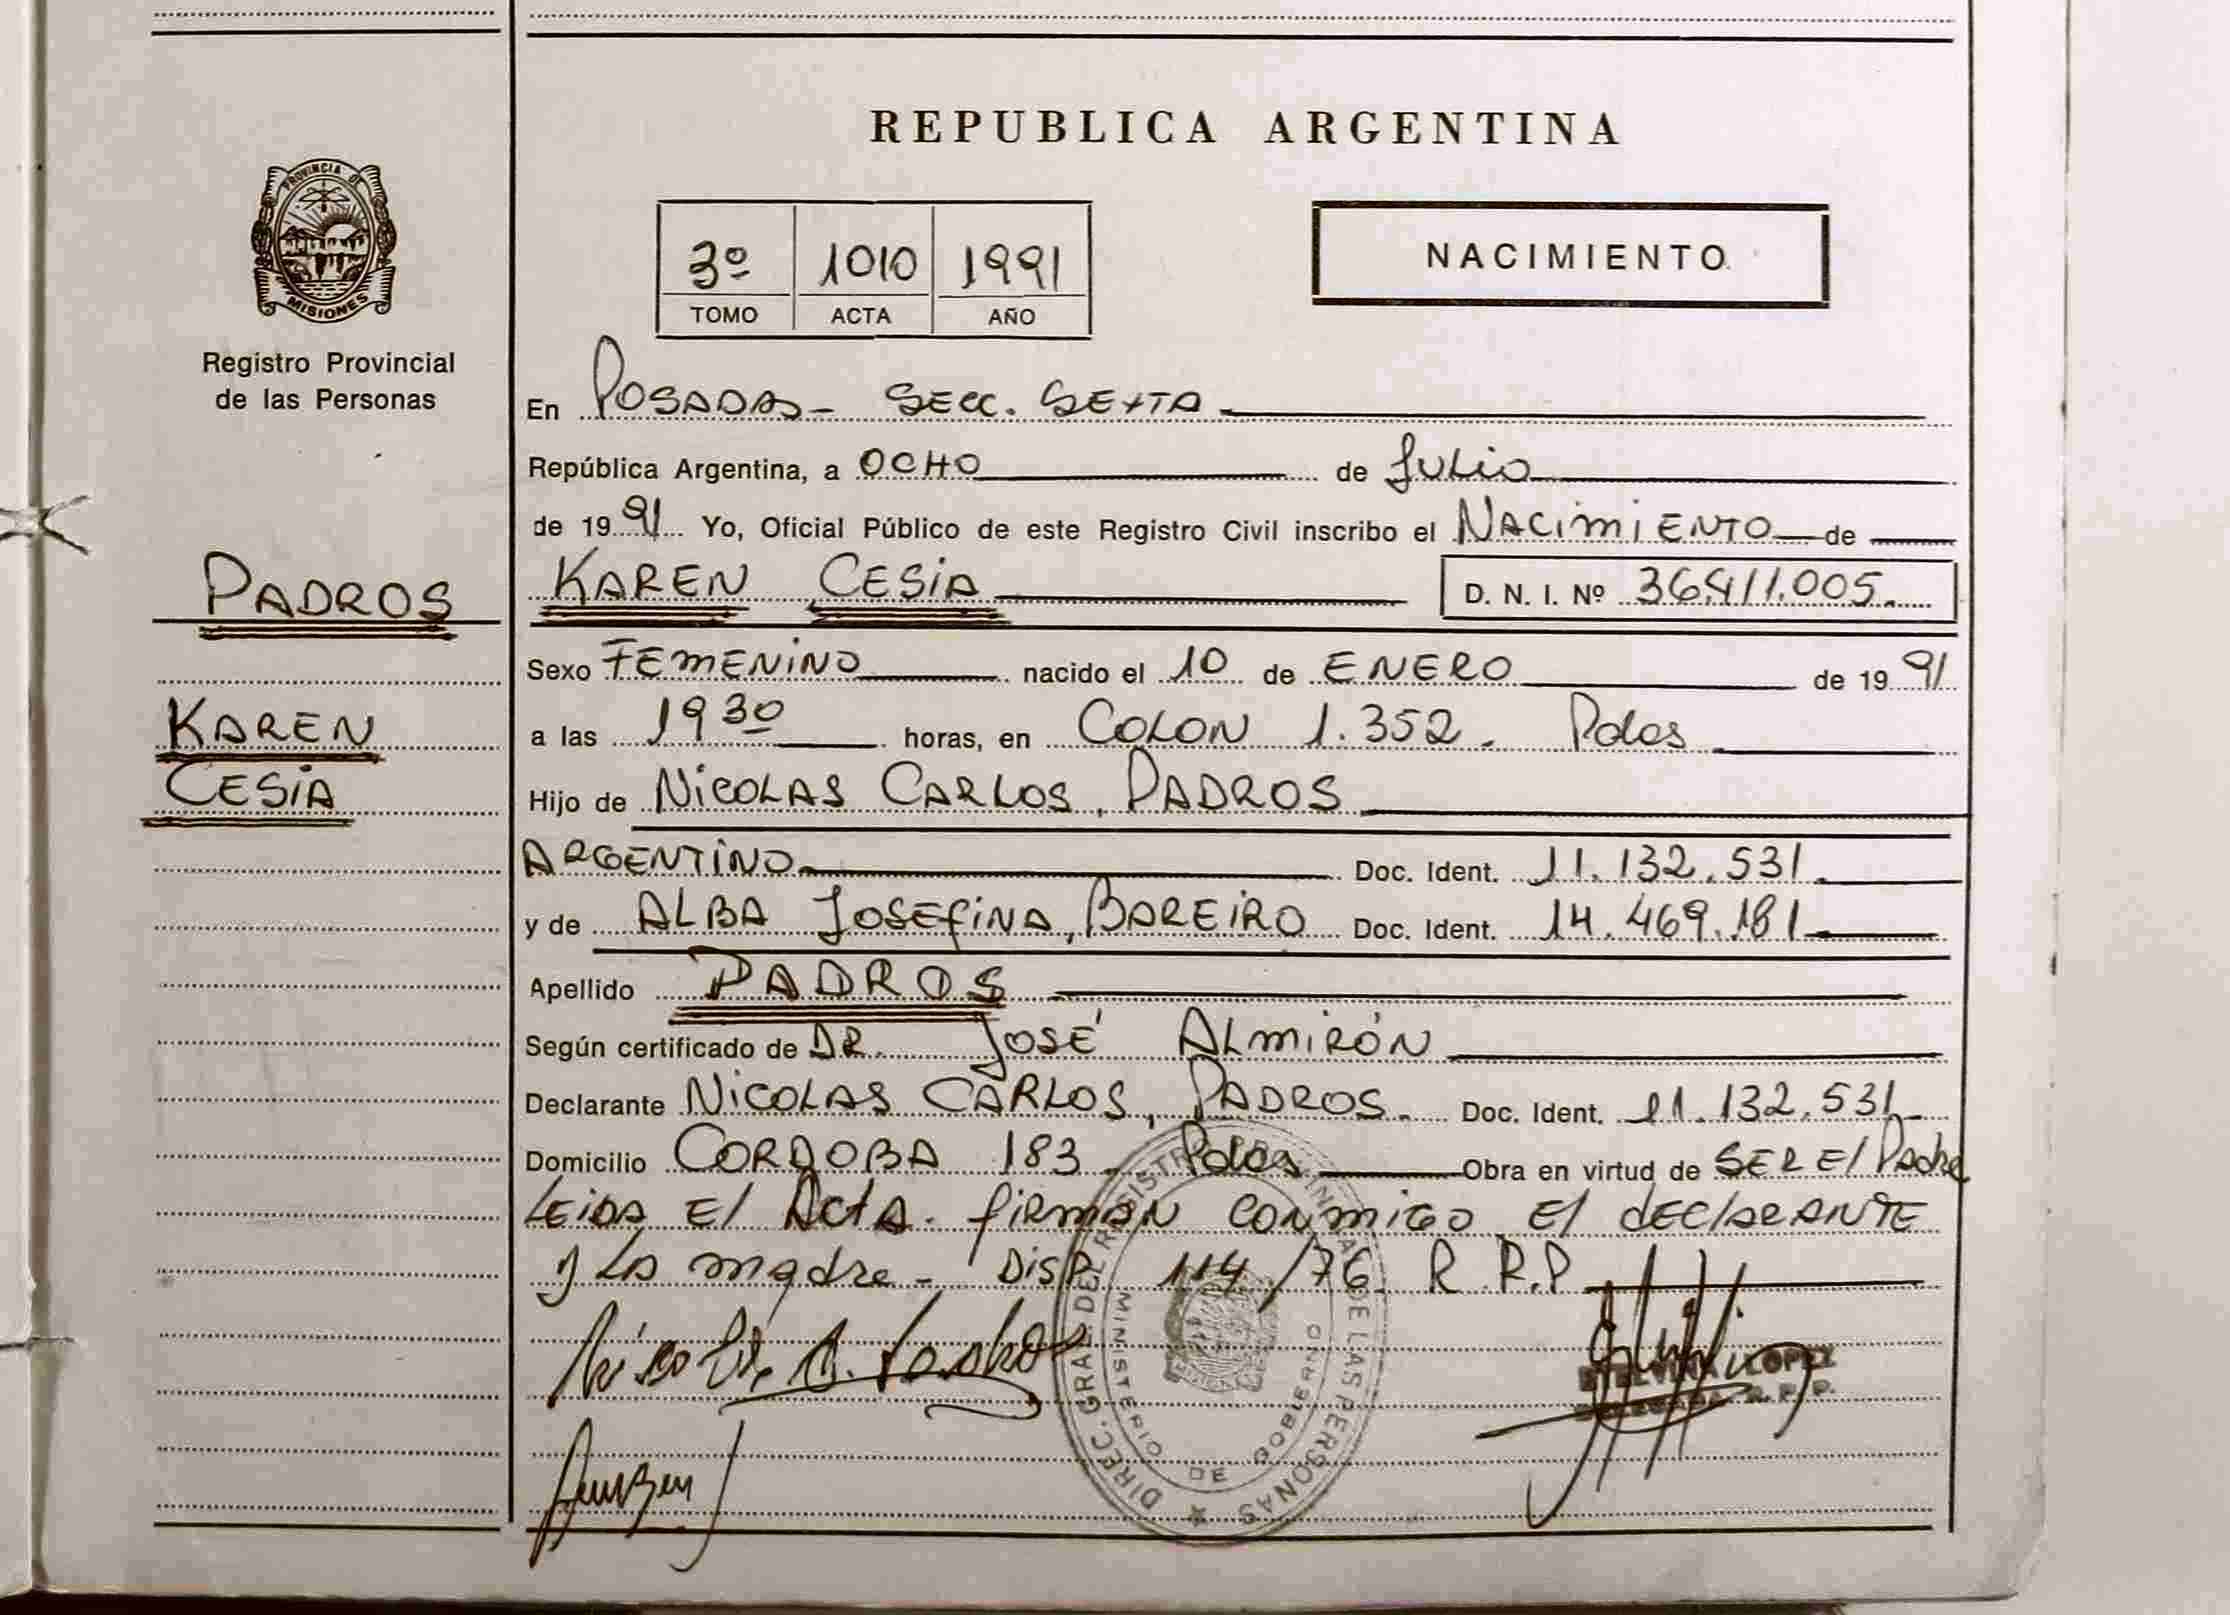 REPUBLICA ARGENTINA
PROVINCIA DE
MISIONES
Registro Provincial
de las Personas
3º 1010 1991
TOMO ACTA AÑO
NACIMIENTO
En POSADAS - SECC. SEXTA
República Argentina, a OCHO de JULIO
de 19 91 Yo, Oficial Público de este Registro Civil inscribo el NACIMIENTO de
PADROS
KAREN CESIA D. N. I. Nº 36.411.005.
Sexo FEMENINO nacido el 10 de ENERO de 19 91
KAREN
a las 19 30 horas, en COLON 1.352. Pdas
CESIA
Hijo de NICOLAS CARLOS, PADROS
ARGENTINO Doc. Ident. 11.132.531.
y de ALBA JOSEFINA, BAREIRO Doc. Ident. 14.469.181
Apellido PADROS
Según certificado de DR. JOSÉ ALMIRÓN
Declarante NICOLAS CARLOS, PADROS. Doc. Ident. 11.132.531
Domicilio CORDOBA 183 - Pdas Obra en virtud de SER El Padre
LEIDA El Acta. firman conmigo El dEClARANTE
y La madre - Disp. 114/76. R.R.P
DIREC. GRAL. DEL REGISTRO PROVINCIAL DE LAS PERSONAS
MINISTERIO DE GOBIERNO
ETELVINA LOPEZ
DELEGADA R.P.P.